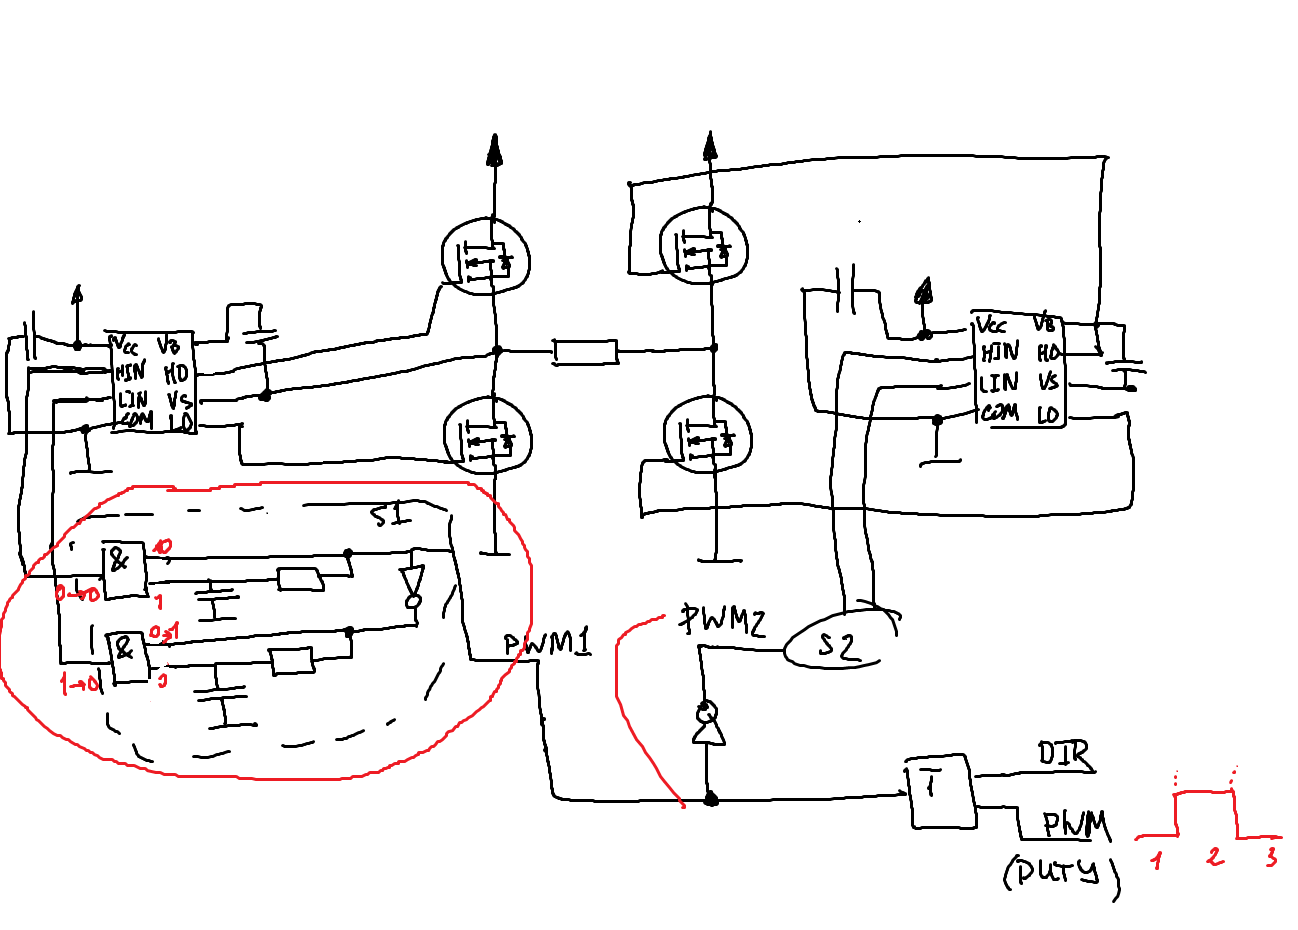 Vcc VB
HIN HO
LIN VS
COM LO
Vcc VB
HIN HO
LIN VS
COM LO
S1
&
0→0
1
&
0→1
1→0
PWM1
PWM2
S2
DIR
1
PWM
(DUTY)
1 2 3